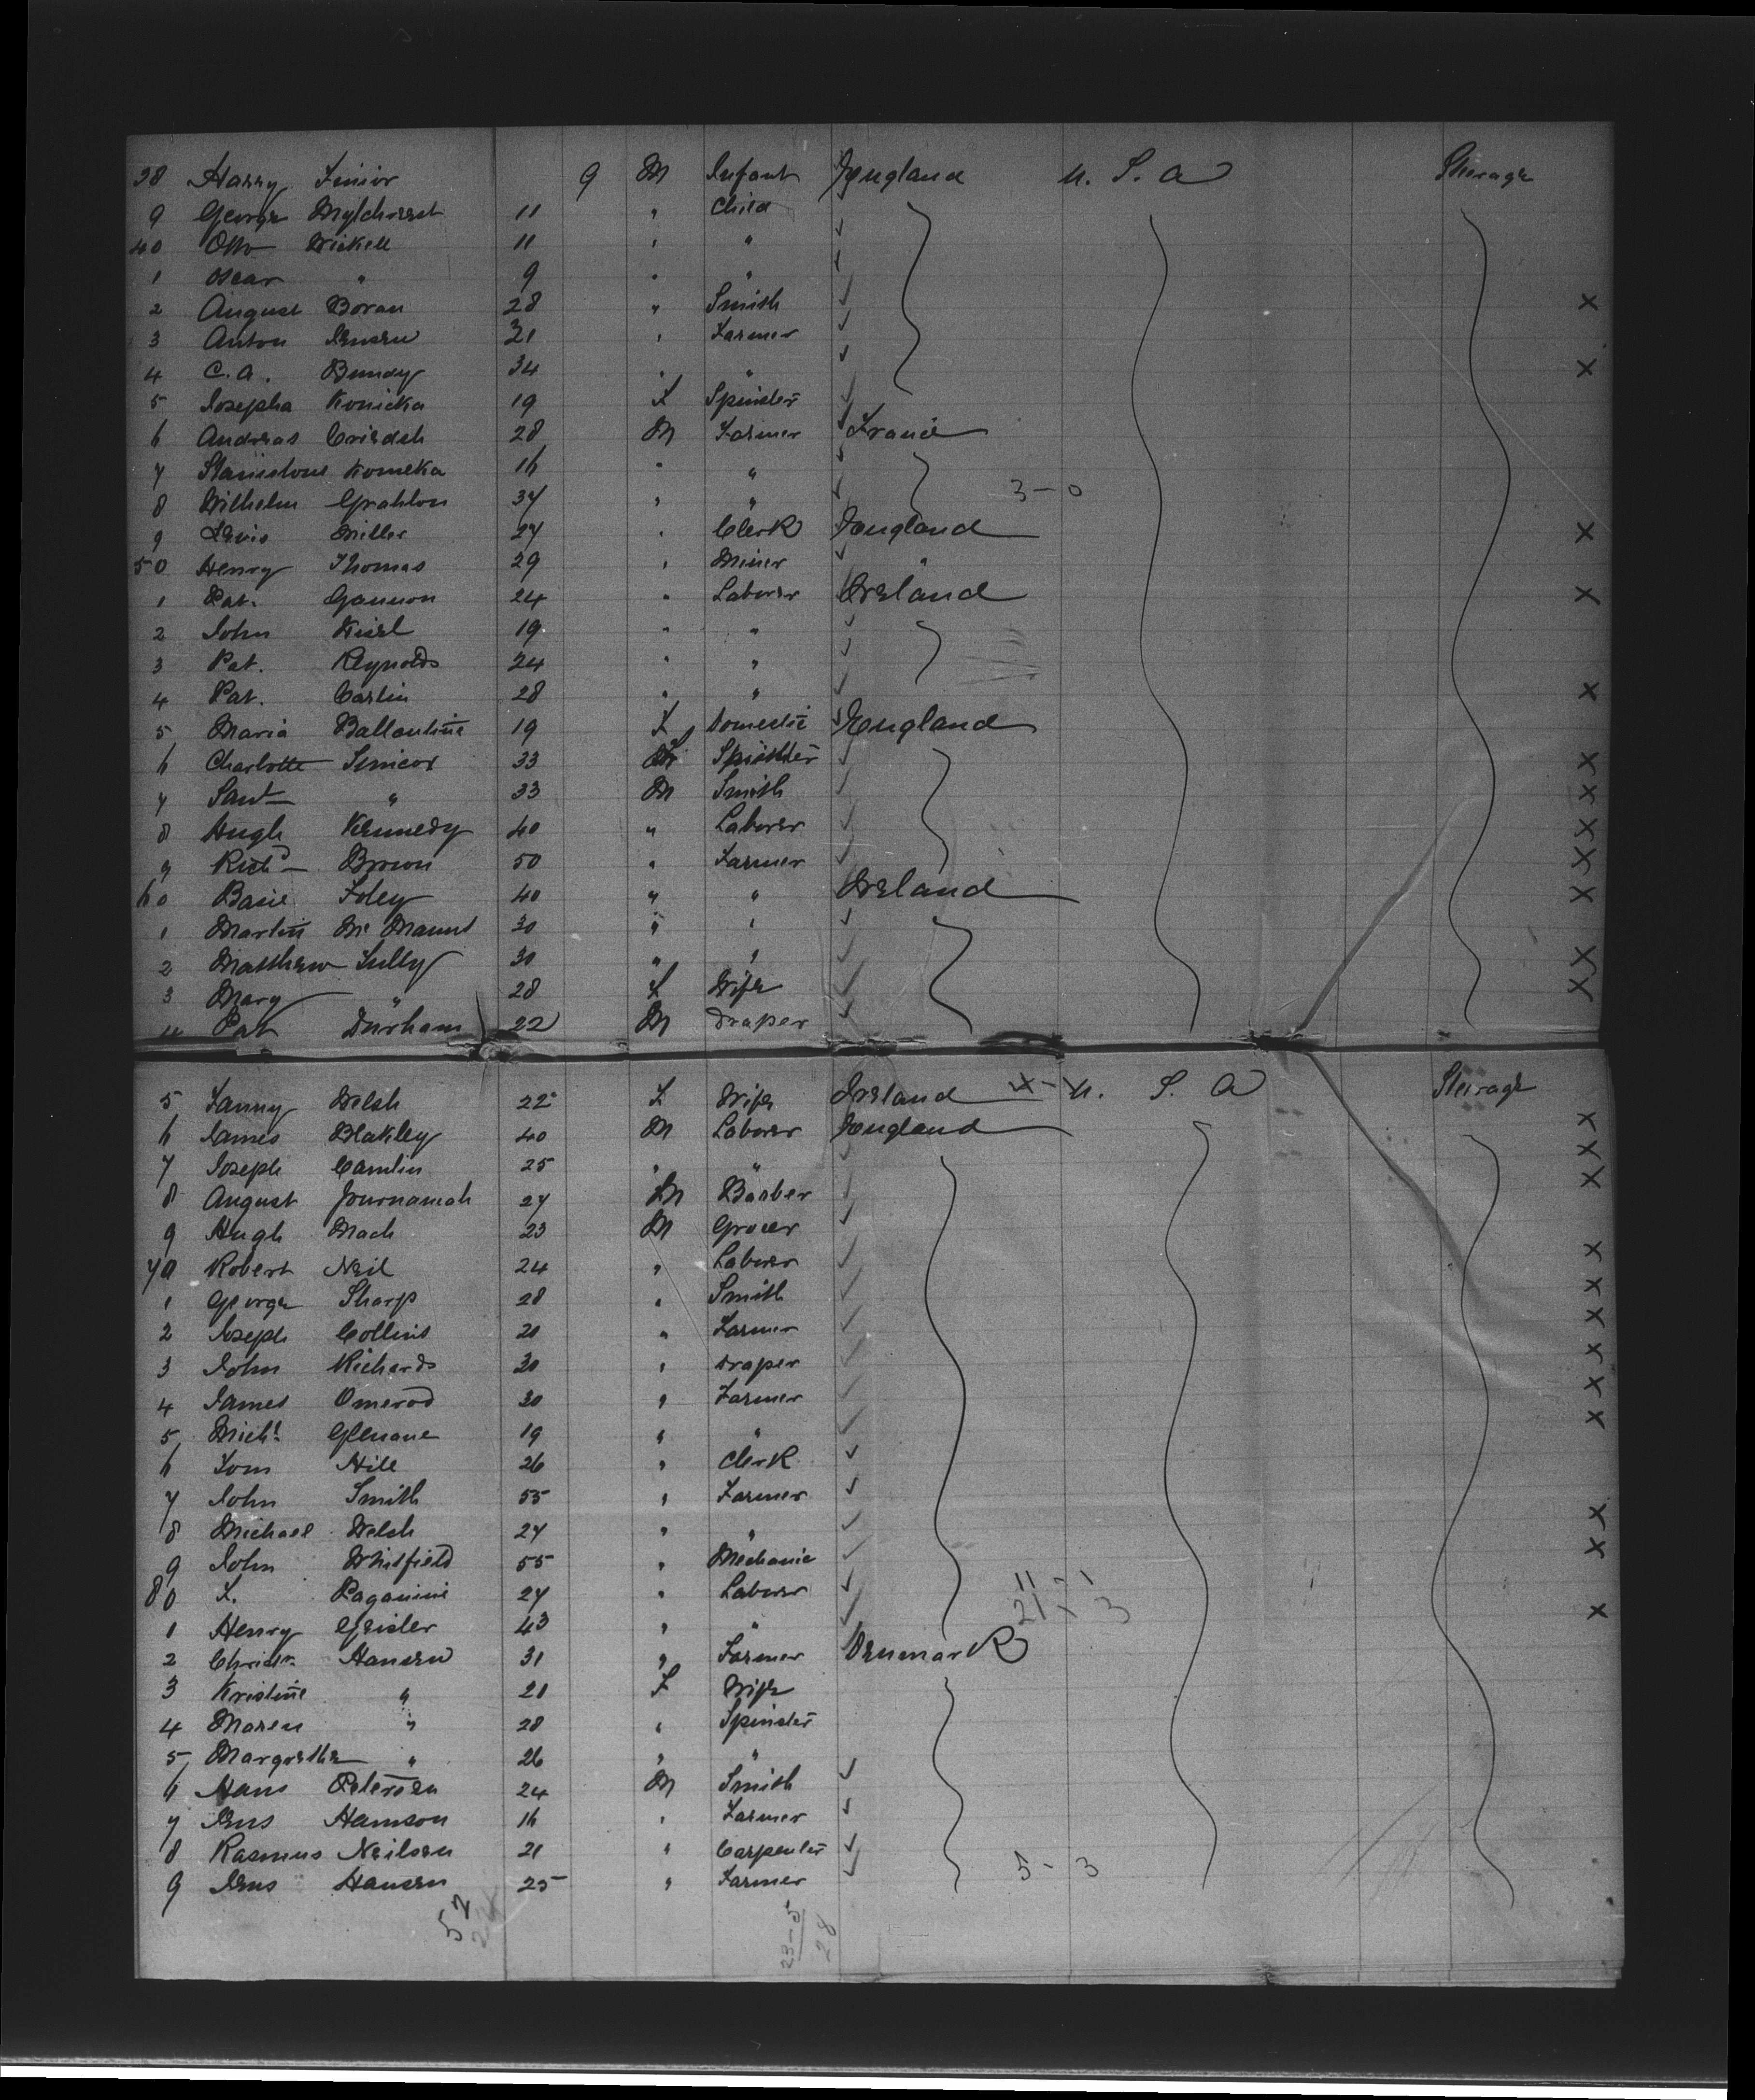 38 Harry Senior 9 M Infant England U. S. A Steerage
9 George Mylchreest 11 " Child
40 Otto Wickell 11 " "
1 Oscar " 9 " "
2 August Boran 28 " Smith
3 Anton Jensen 21 " Farmer
4 C. A. Bundy 34 " "
5 Josepha Konicka 19 F Spinster
6 Andreas 28 M Farmer France
7 Konieka 16 " "
8 Wilhelm Grahlon 37 " " 3 - 0
9 Lewis Miller 27 " Clerk England
50 Henry Thomas 29 " Miner "
1 Pat. Gannon 24 " Laborer Ireland
2 John 19 " "
3 Pat. Reynolds 24 " "
4 Pat. Carlin 28 " "
5 Maria Ballantine 19 F Domestic England
6 Charlotte Senior 33 F Spinster
7 Saml " 33 M Smith
8 Hugh Kennedy 40 " Laborer
9 Richd Brown 50 " Farmer
60 Foley 40 " " Ireland
1 Martin Mc 30 " "
2 Matthew Tully 30 " "
3 Mary " 28 F Wife
4 Pat Durham 22 M Draper
5 Fanny Welsh 22 F Wife Ireland U. S. A Steerage
6 James Blakley 40 M Laborer England
7 Joseph Camlin 25 " "
8 August 27 M Barber
9 Hugh Mach 23 M Grocer
70 Robert Neil 24 " Laborer
1 George Sharp 28 " Smith
2 Joseph Collins 20 " Farmer
3 John Richards 30 " Draper
4 James Omerod 30 " Farmer
5 Michl Glenane 19 " "
6 Tom Hill 26 " Clerk
7 John Smith 55 " Farmer
8 Michael Welsh 27 " "
9 John Whitfield 55 " Mechanic
80 F. Paganini 27 " Laborer 11 - 1
1 Henry Geisler 43 " " 21 3
2 Christn Hansen 31 " Farmer Denmark
3 Kristine " 21 F Wife
4 Maren " 28 " Spinster
5 Margrethe " 26 " "
6 Hans Petersen 24 M Smith
7 Jens Hanson 16 " Farmer
8 Rasmus Neilsen 21 " Carpenter
9 Jens Hansen 25 " Farmer 5 - 3
52
23-5
28